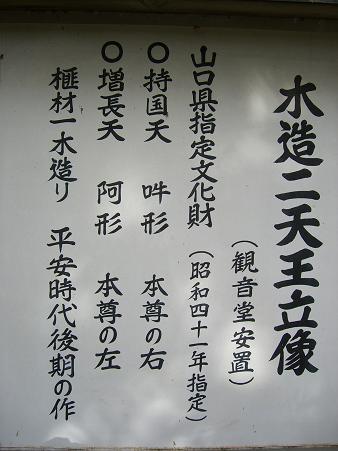 木造二天王立像
（観音堂安置）
山口県指定文化財（昭和四十一年指定）
○持国天 吽形 本尊の右
○増長天 阿形 本尊の左
榧材一木造り 平安時代後期の作